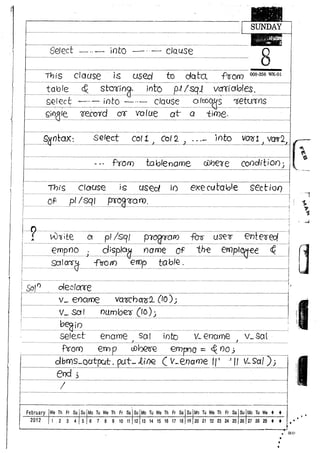 SUNDAY
8
008-358 WK-01
Select —·—·— into —·—·— clause
This clause is used to data from
table & storing into pl/sql variables.
select —·— into —·— clause always returns
single record or value at a time.
Syntax: select col1, col2, .... into var1, var2,
... from tablename where condition;
This clause is used in executable section
of pl/sql program.
? Write a pl/sql program for user entered
empno ; display name of the employee &
salary from emp table.
Solⁿ declare
v_ename varchar2(10);
v_sal number(10);
begin
select ename, sal into v_ename, v_sal
from emp where empno = &no;
dbms_output.put_line (v_ename||' '||v_sal);
end;
/
FEB
MAR
February We Th Fr Sa Su Mo Tu We Th Fr Sa Su Mo Tu We Th Fr Sa Su Mo Tu We Th Fr Sa Su Mo Tu We
2012 1 2 3 4 5 6 7 8 9 10 11 12 13 14 15 16 17 18 19 20 21 22 23 24 25 26 27 28 29